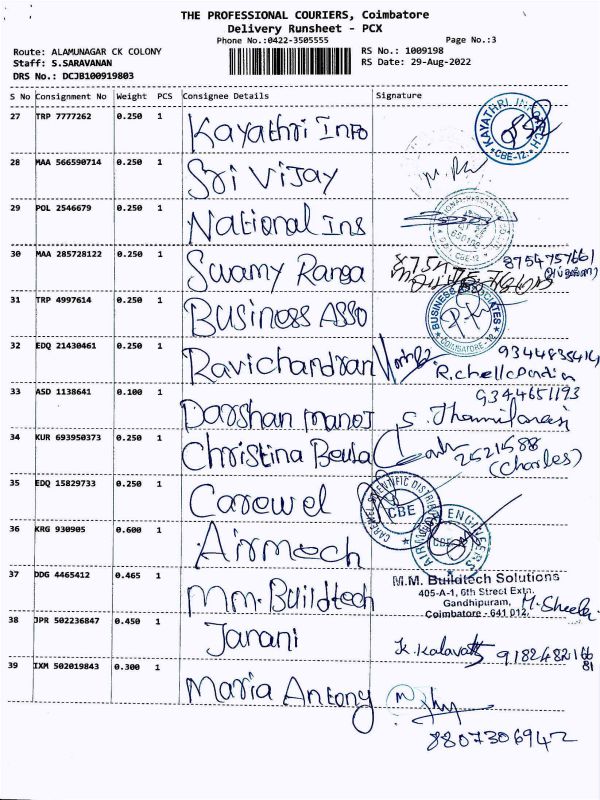 THE PROFESSIONAL COURIERS, Coimbatore
Delivery Runsheet - PCX
Phone No.:0422-3505555 Page No.:3
Route: ALAMUNAGAR CK COLONY RS No.: 1009198
Staff: S.SARAVANAN RS Date: 29-Aug-2022
DRS No.: DCJB100919803
S No Consignment No Weight PCS Consignee Details Signature
27 TRP 7777262 0.250 1 Kayathri Info
KAYATHRI CBE-12.
28 MAA 566590714 0.250 1 Sri Vijay
29 POL 2546679 0.250 1 National Ins
30 MAA 285728122 0.250 1 Swamy Ranga 8754757661
31 TRP 4997614 0.250 1 Business Asso
BUSINESS ASSOCIATES COIMBATORE
32 EDQ 21430461 0.250 1 Ravichandran
R.chellapandian
33 ASD 1138641 0.100 1 Darshan Manoj 9344651193
34 KUR 693950373 0.250 1 Christina Beula 2521588
(Charles)
35 EDQ 15829733 0.250 1 Carewel
CAREWEL SCIENTIFIC CBE
36 KRG 930905 0.600 1 Airmech
ENGINEERS
37 DDG 4465412 0.465 1 MM. Buildtech
M.M. Buildtech Solutions
405-A-1, 6th Street Extn.
Gandhipuram,
Coimbatore - 641 012.
38 JPR 502236847 0.450 1 Janani
39 IXM 502019843 0.300 1 Maria Antony
8807306942